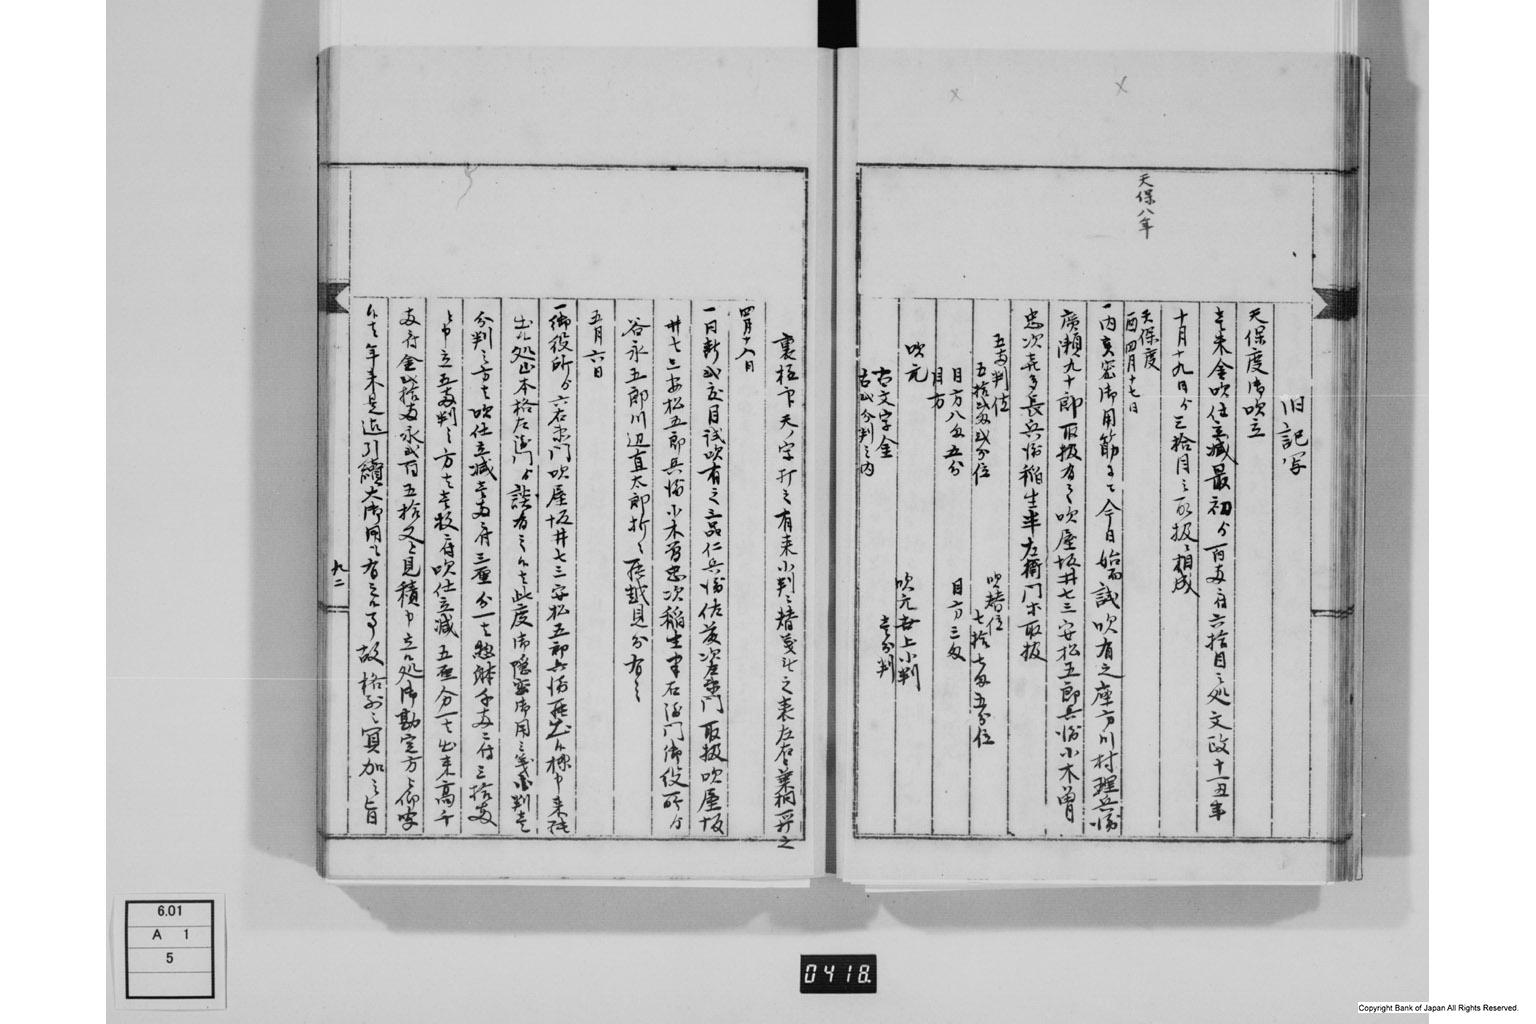 天保八年
旧記写
天保度御吹立
壱朱金吹仕立減最初ゟ百両ニ付六拾目之処文政十一丑年
十月十九日ゟ三拾目之取扱ニ相成
天保度
酉四月十七日
一内真密御用筋ニて今日始而試吹有之座方川村理兵衛
廣瀬九十郎取扱有之吹屋坂井七三安松五郎兵衛小木曽
忠次喜多長兵衛稲生半左衛門等取扱
五両判位
五拾弐匁弐分位
吹替位
七拾七匁五分位
目方八匁五分
目方三匁
目方
吹元
古文字金
吹元世上小判
壱分判
古弐分判之内
裏極印天ノ字打之有来小判之替
之来左右
桐
四月十八日
一同断弐度目試吹有之
仁兵衛佐
次左衛門取扱吹屋坂
井七三安松五郎兵衛小木曽忠次稲生半右衛門御役所ゟ
谷永五郎川辺直太郎折々罷越見分有之
五月六日
一御役所ゟ六右衛門吹屋坂井七三安松五郎兵衛罷出候様申来
出候処山本格左衛門ゟ談有之候者此度御隠密御用之
小判壱
分判之方者吹仕立減壱両ニ付三厘
千両ニ付三拾両
与申立五両判之方者壱枚ニ付吹仕立減五厘
出来高千
両ニ付金弐拾両永弐百五拾文与見積申立候処御勘定方
候者年来是迄引續大御用も有之候事故格別之冥加之旨
九二
6.01
A 1
5
0418.
Copyright Bank of Japan All Rights Reserved.